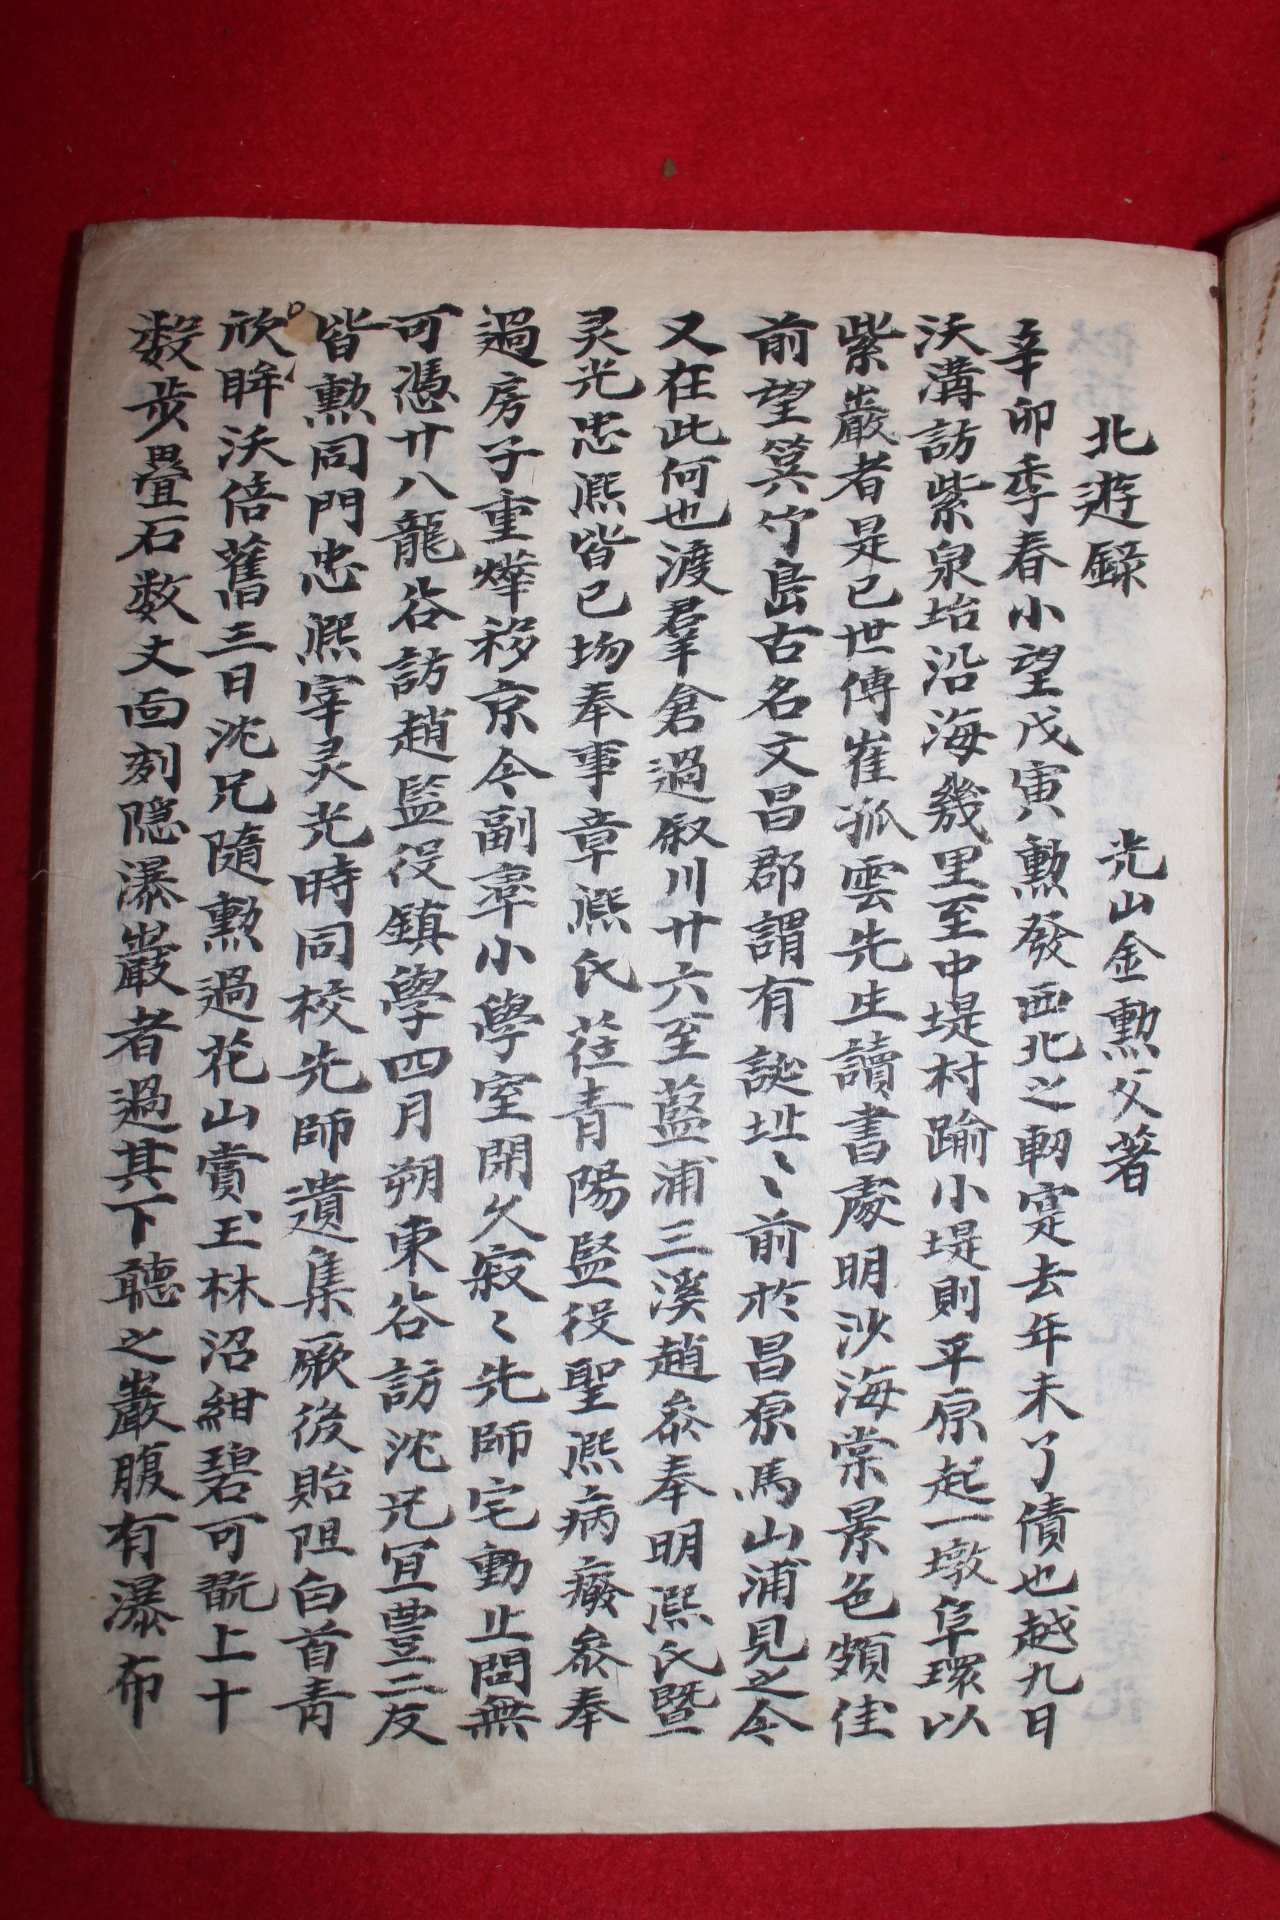 北遊錄　光山金勲父著
辛卯季春小望戊寅勲發西北之軔寔去年未了債也越九日
沃溝訪紫泉坮沿海幾里至中堤村踰小堤則平原起一墩阜環以
紫巖者是已世傳崔孤雲先生讀書處明沙海棠景色頗佳
前望箕竹島古名文昌郡謂有誕址〻前於昌原馬山浦見之今
又在此何也渡羣倉過叙川廿六至藍浦三溪趙叅奉明熙氏曁
灵光忠熈皆已圽奉事章熈氏莅青陽監役聖熈病癈叅奉
過房子重燁移京今副率小學室開久寂〻先師宅動止問無
可憑廿八龍谷訪趙監役鎮學四月朔東谷訪沈兄冝豊二友
皆勲同門忠熈宰灵光時同校先師遺集厥後貽阻白首青
欣眸沃倍舊三日沈兄隨勲過花山賞玉林沼紺碧可翫上十
数步疊石数丈面刻隠瀑巖者過其下聽之巖腹有瀑布